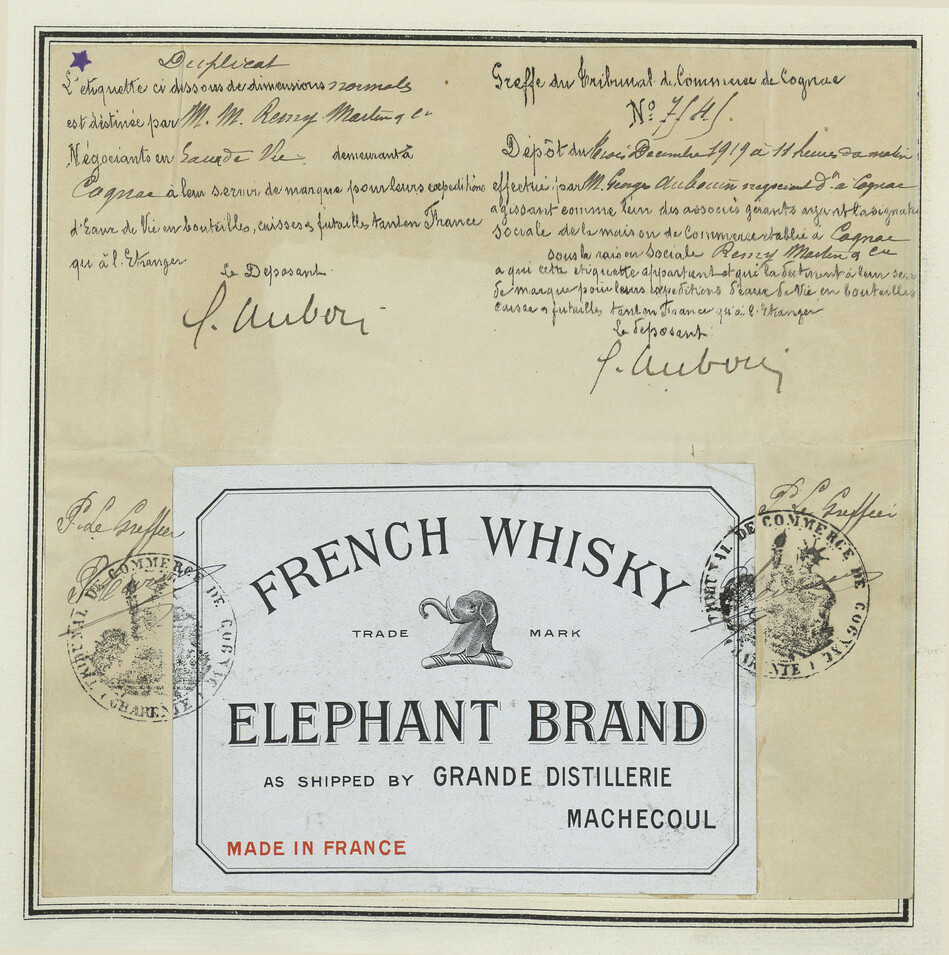 Duplicat
L'etiquette ci dessous de dimensions normales
est destinée par M. M. Remy Martin & Cie
Négociants en Eaux de Vie demeurant à
Cognac à leur servir de marque pour leurs expeditions
d'Eaux de Vie en bouteilles, caisses & futailles tant en France
qu'à l'Etranger
Le Deposant
G. Auboin
Greffe du Tribunal de Commerce de Cognac
No 7545.
Dépôt du trois Decembre 1919 à 11 heures du matin
effectué par M. Georges Auboin negociant dt à Cognac
agissant comme l'un des associés gérants ayant la signature
Sociale de la maison de Commerce établie à Cognac
sous la raison sociale Remy Martin & Cie
à qui cette etiquette appartient et qui la destinent à leur
de marque pour leurs expeditions d'eaux de Vie en bouteilles
caisses & futailles tant en France qu'à l'Etranger
Le deposant
G. Auboin
P. Le Greffier
P. Le Greffier
TRIBUNAL DE COMMERCE DE COGNAC
(CHARENTE)
TRIBUNAL DE COMMERCE DE COGNAC
(CHARENTE)
FRENCH WHISKY
TRADE MARK
ELEPHANT BRAND
AS SHIPPED BY GRANDE DISTILLERIE
MACHECOUL
MADE IN FRANCE